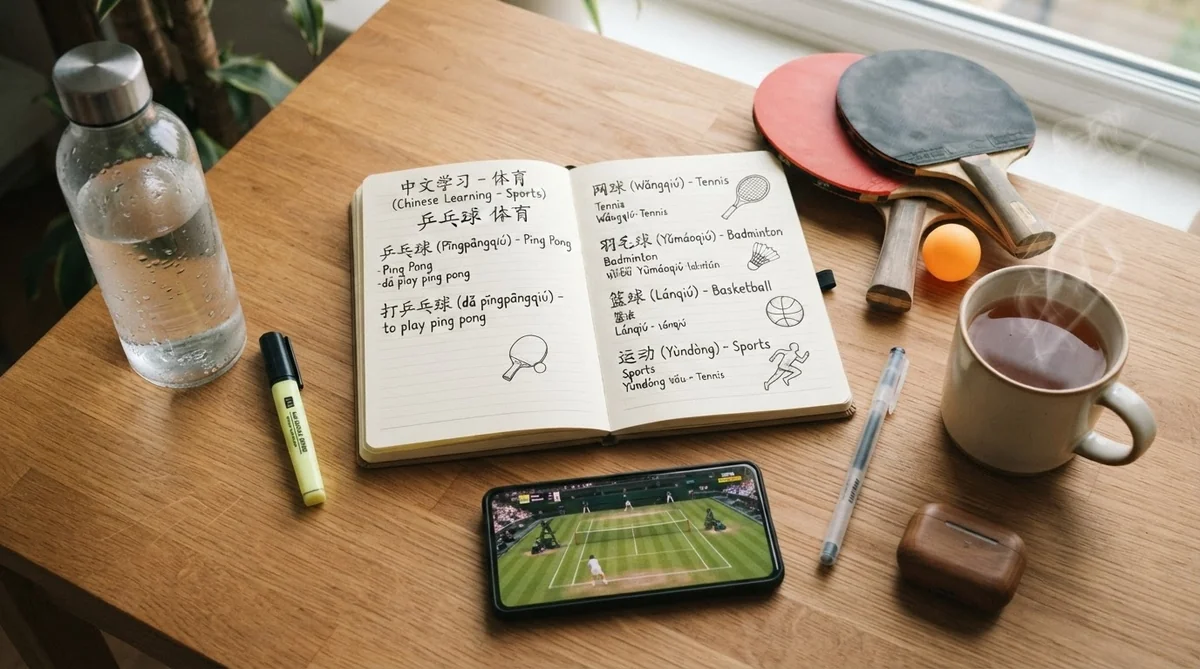 中文学习 - 体育
(Chinese Learning - Sports)
乒乓球 体育
乒乓球 (Pīngpāngqiú) - Ping Pong
- Ping Pong
- dǎ play ping pong
打乒乓球 (dǎ pīngpāngqiú) -
to play ping pong
网球 (Wǎngqiú) - Tennis
Tennis
Wǎngqiú - Tennis
羽毛球 (Yǔmáoqiú) - Badminton
Badminton
Yǔmáoqiú
篮球 (Lánqiú) - Basketball
Lánqiú - lánqiú
运动 (Yùndòng) - Sports
Sports
Yùndòng - Tennis